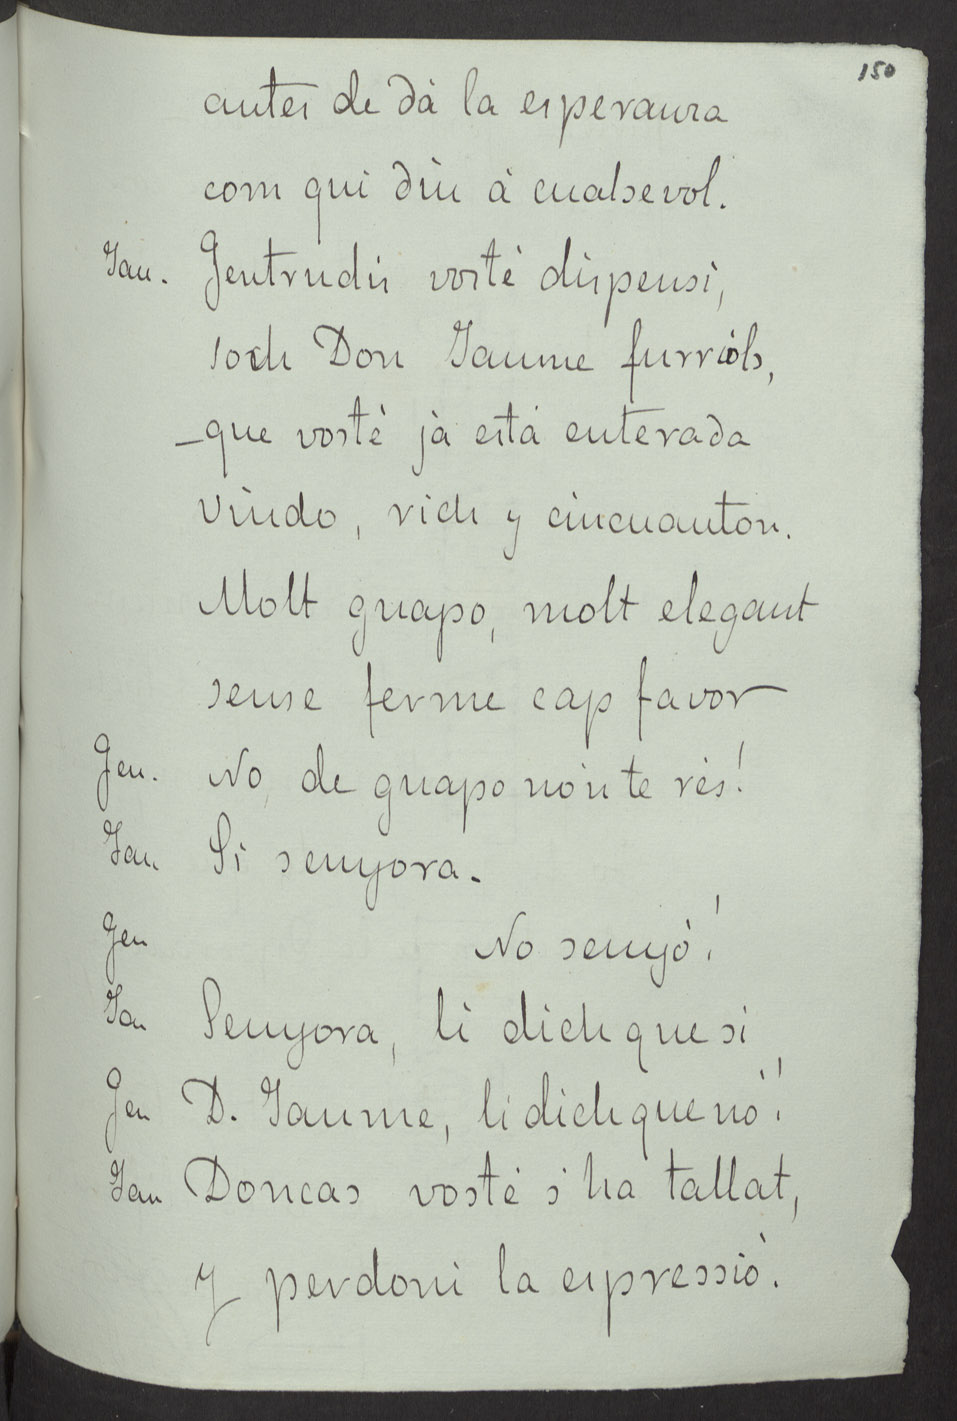 150
antes de dá la esperansa
com qui diu á cualsevol.
Jau. Gertrudis vosté dispensi,
soch Don Jaume furriols,
–que vosté já está enterada
viudo, rich y cincuanton.
Molt guapo, molt elegant
sense ferme cap favor
Gen. No, de guapo nón te rés!
Jau Si senyora.
Gen No senyó!
Jau Senyora, li dich que si
Gen D. Jaume, li dich que nó!
Jau Doncas vosté s'ha tallat,
y perdoni la espressió.